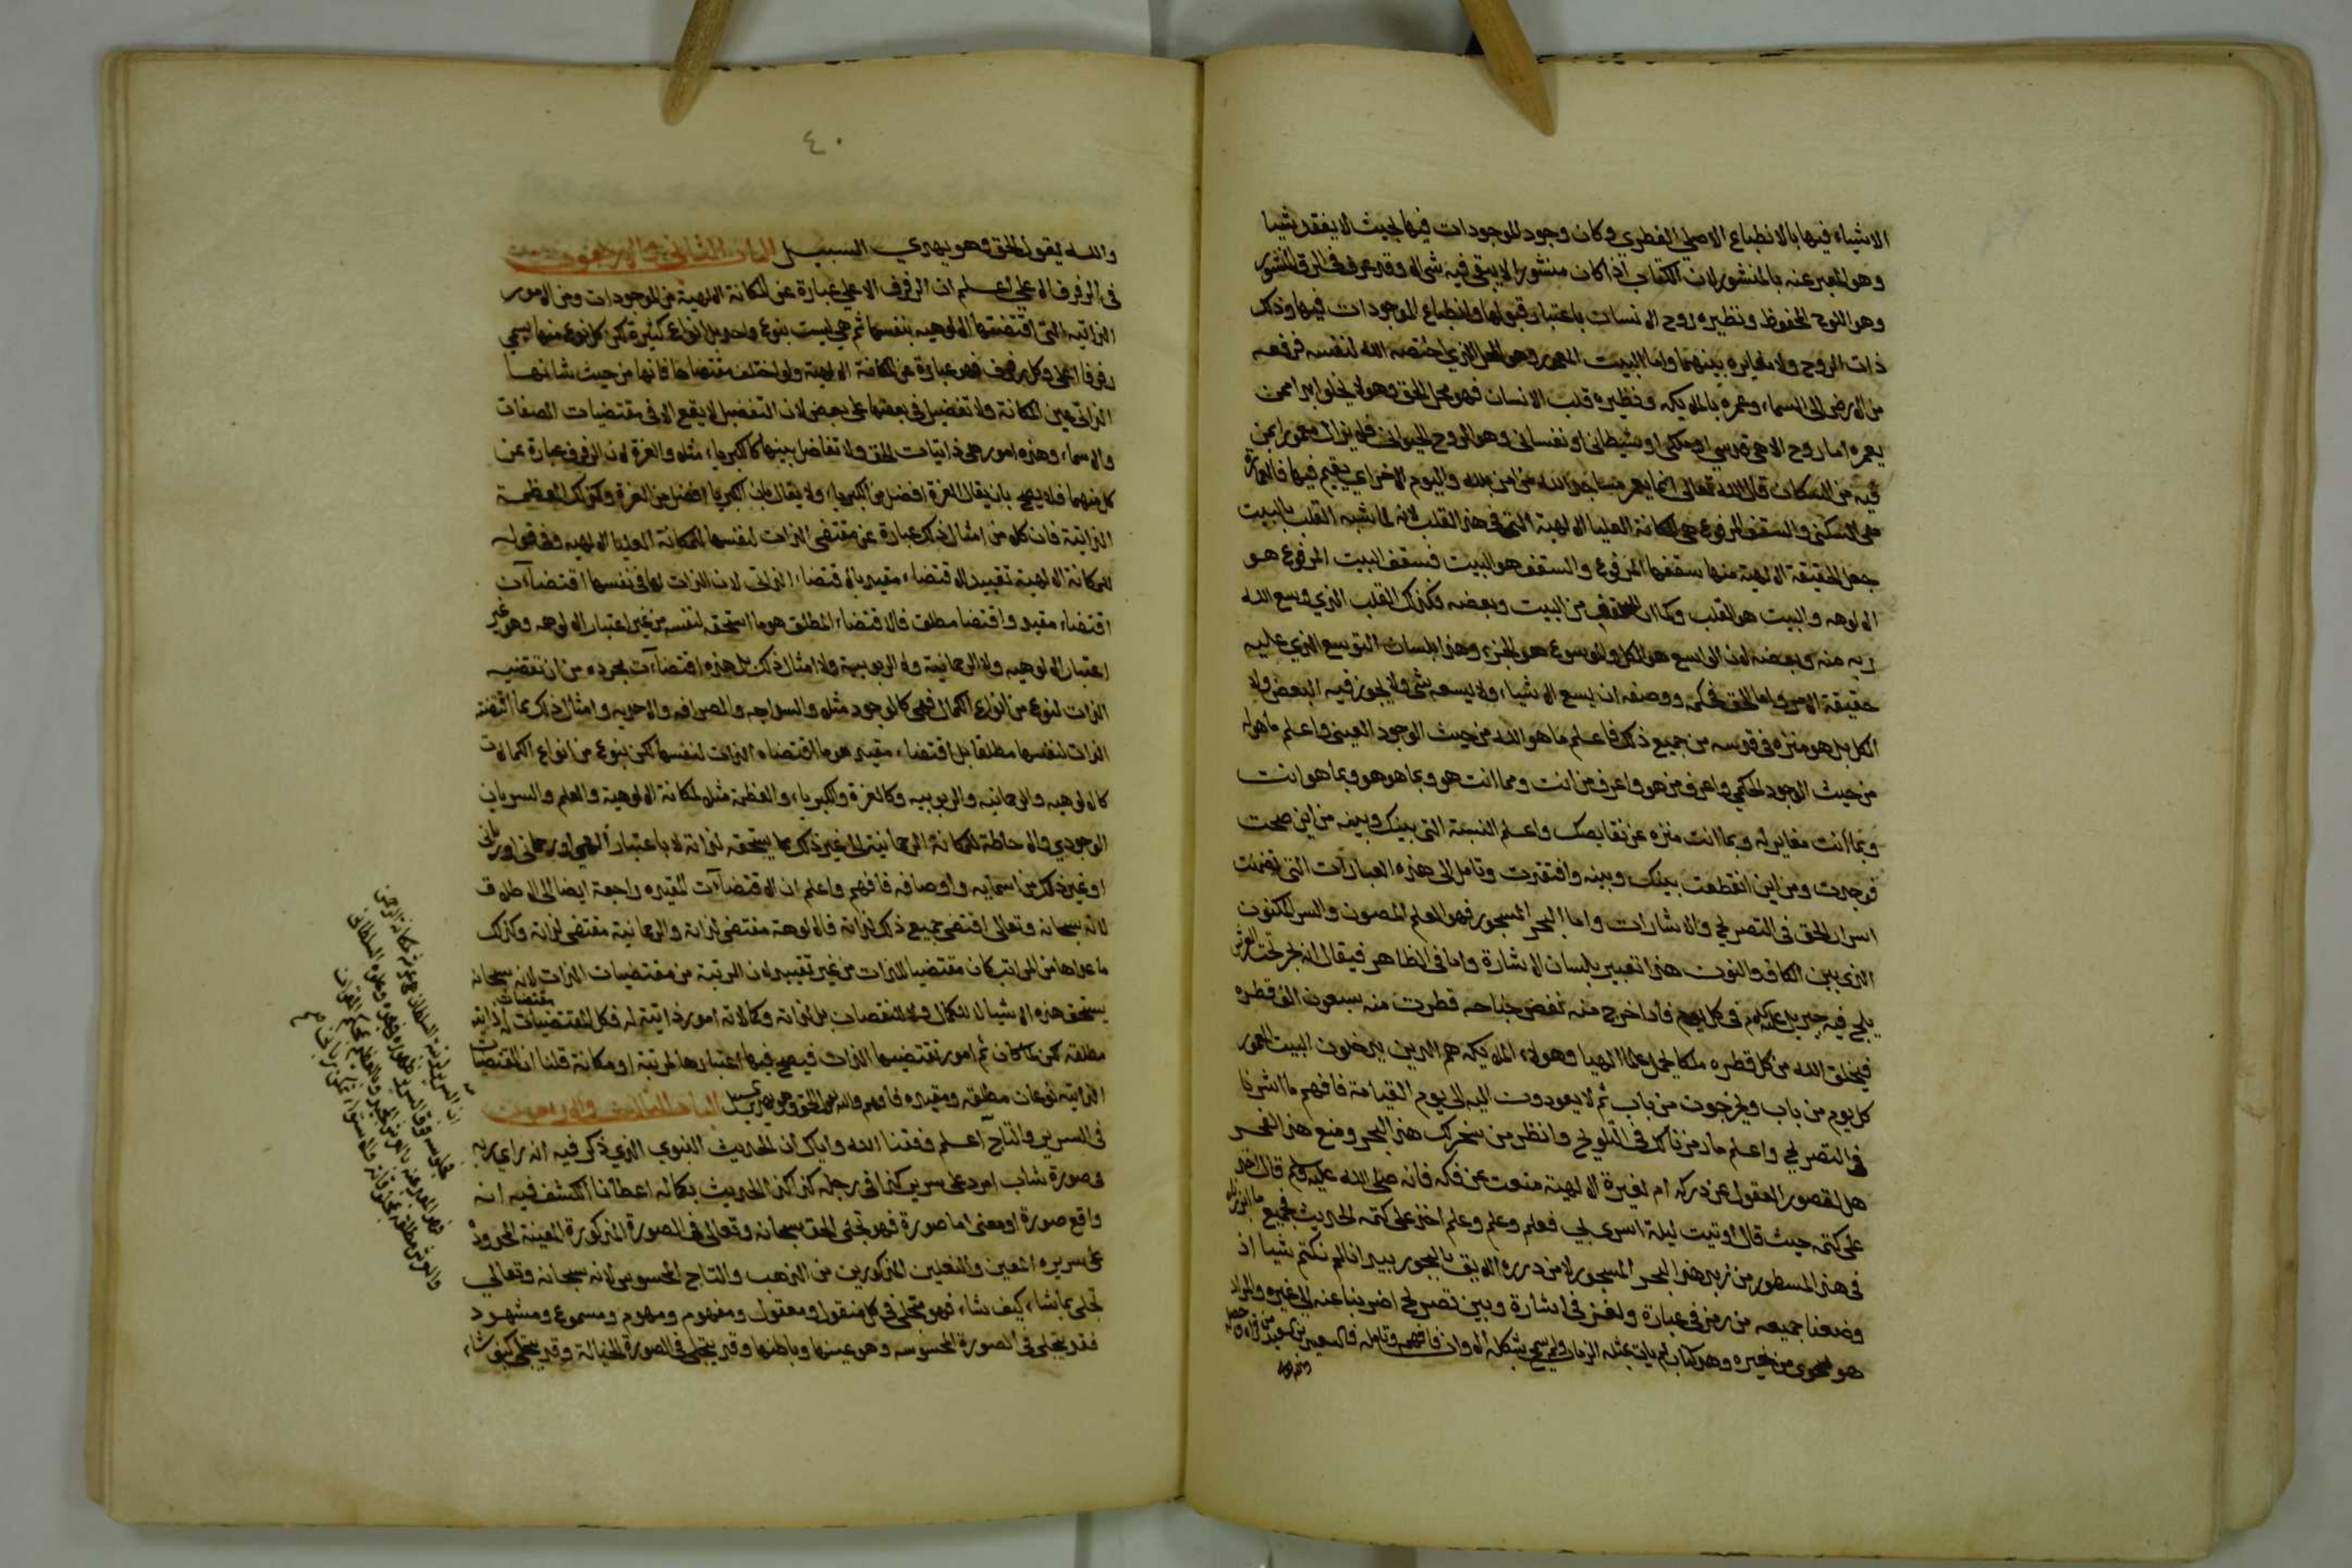 الاشياء فيها بالانطباع الاصلي الفطري وكان وجود الموجودات فيها بحيث لا يفقد شيا
وهو المعبر عنه بالمنشور لان الكتاب اذا كان منشورا لا يبقى فيه شي الا وقد عرف فالرق المنشور
وهو اللوح المحفوظ ونظيره روح الانسان باعتبار قبولها وانطباع الموجودات فيها وذلك
ذات الروح ولا مغايره بينهما واما البيت المعمور وهو المحل الذي اختصه الله لنفسه فرفعه
من الارض الى السماء وعمره بالملايكه ونظيره قلب الانسان فهو محل الحق وهو لا يخلوا ابدا ممن
يعمره اما روح الاهي قدسي او ملكي او شيطاني او نفساني وهو الروح الحيواني فلا يزال معمورا بمن
فيه من السكان قال الله تعالى انما يعمر مساجد الله من امن بالله واليوم الاخر اي يقيم فيها فالعمارة
هي السكنى والسقف المرفوع هي المكانة العليا الالهية التي في هذا القلب لانه لما شبه القلب بالبيت
جعل الحقيقة الالهية منها سقفها المرفوع والسقف هو البيت فسقف البيت المرفوع هو
الالوهه والبيت هو القلب وكما ان السقف من البيت وبعضه فكذلك القلب الذي وسع الله
ربه منه وبعضه لان الواسع هو الكل والموسوع هو الجزء وهذا بلسان التوسع الذي عليه
حقيقة الامر واما الحق فحكمه ووصفه ان يسع الاشياء ولا يسعه شي ولا يجوز فيه البعض ولا
الكل بل هو منزه في قدسه من جميع ذلك فاعلم ما هو الله من حيث الوجود العيني واعلم ما هو له
من حيث الوجود الحكمي واعرف من هو واعرف من انت ومما انت هو وبما هو هو وبما هو انت
وبما انت مغاير له وبما انت منزه عن نقايصك واعلم النسبة التي بينك وبينه من اين صحت
فوجدت ومن اين انقطعت بينك وبينه وافتقدت وتامل الى هذه العبارات التي تضمنت
اسرار الحق في التصريح والاشارات واما البحر المسجور فهو العلم المصون والسر المكنون
الذي بين الكاف والنون هذا تعبير بلسان الاشارة واما في الظاهر فيقال انه بحر تحت العرش
يلج فيه جبريل عليه السلام في كل يوم فاذا خرج منه نفض جناحه قطرت منه سبعون الف قطره
فيخلق الله من كل قطره ملكا يحمل علما الهيا وهولاء الملايكه هم الذين يدخلون البيت المعمور
كل يوم من باب ويخرجون من باب ثم لا يعودون اليه الى يوم القيامة فافهم ما اشرنا
في التصريح واعلم ما رمزناه لك في التلويح وانظر من سخر لك هذا البحر ومنع هذا الفجر
هل لقصور العقول عن دركه ام لغيرة الالهية منعت عن فكه فانه صلى الله عليه وسلم قال اخذ
على كتمه حيث قال اوتيت ليلة اسري بي فعلم وعلم وعلم اخذ على كتمه الحديث فجميع ما ابرزناه
في هذا المسطور من زبد هذا البحر المسجور لا من درره اللايق بالبحور بيد انا لم نكتم شيا اذ
وضعنا جميعه من رمز في عبارة ولغز في اشارة وبين تصريح اضربنا عنه الى غيره والمراد
هو المحوي من خيره وهذا كتاب لم يات بمثله الزمان ولم يسمح بشكله الاوان فافهمه وتامله فالسعيد بن السعيد من قراه او حصله
والله
٤٠
والله يقول الحق وهو يهدي السبيل الباب الثاني والاربعون
في الرفرف الاعلى اعلم ان الرفرف الاعلى عبارة عن المكانة الالهية من الموجودات ومن الامور
الذاتيه التي اقتضتها الالوهيه بنفسها ثم هي ليست بنوع واحد بل انواع كثيرة لكن كل نوع منها يسمي
رفرفا اعلى وكل رفرف فهو عبارة عن المكانة الالهية ولو اختلف مقتضاها فانها من حيث شانها
الذاتي عين المكانة ولا تفضيل في بعضها على بعض لان التفضيل لا يقع الا في مقتضيات الصفات
والاسماء وهذه امور هي ذاتيات الحق ولا تفاضل بينها كالكبرياء مثلا والعزة لان الرفرف عبارة عن
كل منهما فلا يصح بان يقال العزة افضل من الكبرياء ولا يقال بان الكبريا افضل من العزة وكذلك العظمة
الذاتية فان كلا من امثال ذلك عبارة عن مقتضى الذات لنفسها المكانة العليا الالهيه وفي قوله
للمكانة الالهية تقييد الاقتضاء مقيد بالاقتضاء الذاتي لان الذات لها في نفسها اقتضاآت
اقتضاء مقيد واقتضا مطلق فالاقتضاء المطلق هو ما استحقه لنفسه من غير اعتبار الالوهه وهو غير
اعتبار الالوهيه ولا الرحمانية ولا الربوبية ولا امثال ذلك بل هذه اقتضاآت مجرده من ان تقتضيه
الذات لنوع من انواع الكمال فهي كالوجود مثلا والسواجه والصرافه والاحديه وامثال ذلك مما اقتضته
الذات لنفسها مطلقا بل اقتضاء مقيد هو ما اقتضاه الذات لنفسها لكن بنوع من انواع الكمالات
كالالوهيه والرحمانيه والربوبيه وكالعزة والكبرياء والعظمة مثلا لمكانة الالوهية والعلم والسريان
الوجودي والاحاطة للمكانة الرحمانية الى غير ذلك مما يستحقه لذاته لا باعتبار الهي او رحماني او رباني
او غير ذلك من اسمايه واوصافه فافهم واعلم ان الاقتضاآت المقيده راجعة ايضا الى الاطلاق
لانه سبحانه وتعالى اقتضى جميع ذلك لذاته فالالوهة مقتضى لذاته والرحمانية مقتضى لذاته وكذلك
ما عداها من المراتب كان مقتضيا للذات من غير تقييد لان الرتبة من مقتضيات الذات لانه سبحانه
يستحق هذه الاشيا لا للكمال ولا للنقصان بل لذاته وكمالاته امور ذاتية له فكل المقتضيات مقتضيات ذاتيه
مطلقه لكن لما كان ثم امور تقتضيها الذات فيصح فيها اعتبارها لمرتبة او مكانة قلنا ان المقتضيات
الذاتية نوعان مطلقه ومقيده فافهم والله يقول الحق وهو يهدي السبيل الباب الثالث والاربعون
في السرير والتاج اعلم وفقنا الله واياك ان الحديث النبوي الذي ذكر فيه انه راي ربه
في صورة شاب امرد على سرير كذا في رجله كذا كذا الحديث بكماله اعطانا الكشف فيه انه
واقع صورة او معنى اما صورة فهو تجلى الحق سبحانه وتعالى في الصورة المذكورة المعينة المحدوده
على سريره المعين والنعلين المذكورين من الذهب والتاج المحسوس لانه سبحانه وتعالي
تجلى بما يشاء كيف شاء فهو متجلى في كل منقول ومعقول ومفهوم وموهوم ومسموع ومشهود
فقد يتجلى في الصورة المحسوسه وهو عينها وباطنها وقد يتجلى في الصورة الخيالية وقد يتجلى كيف شاء